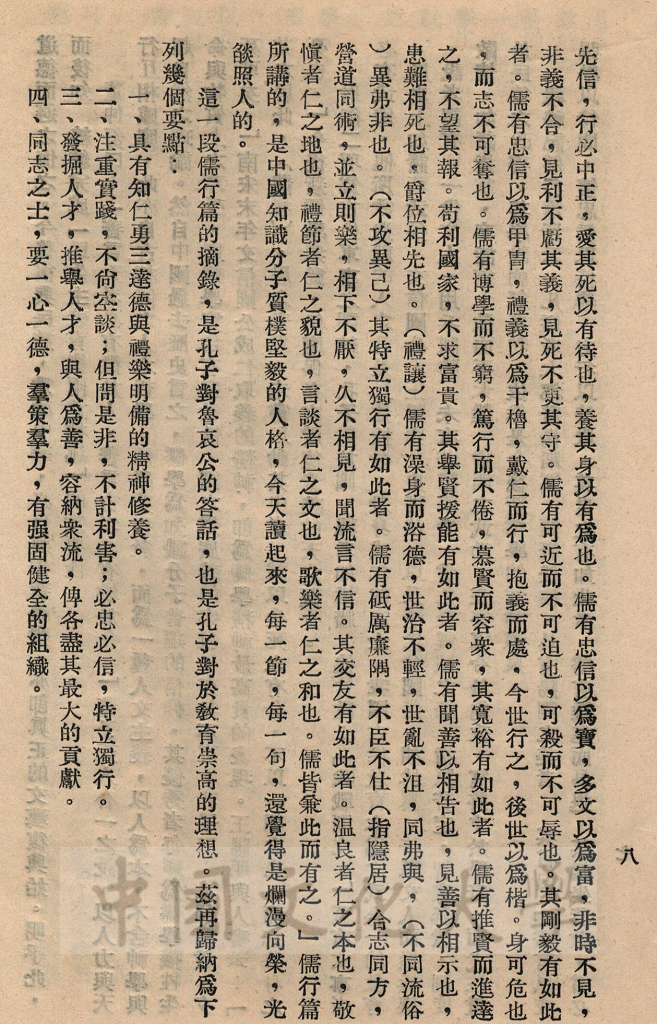 八
先信，行必中正，愛其死以有待也，養其身以有爲也。儒有忠信以爲寶，多文以爲富，非時不見，
非義不合，見利不虧其義，見死不更其守。儒有可近而不可迫也，可殺而不可辱也。其剛毅有如此
者。儒有忠信以爲甲冑，禮義以爲干櫓，戴仁而行，抱義而處，今世行之，後世以爲楷。身可危也
，而志不可奪也。儒有博學而不窮，篤行而不倦，慕賢而容衆，其寬裕有如此者。儒有推賢而進達
之，不望其報。苟利國家，不求富貴。其舉賢援能有如此者。儒有聞善以相告也，見善以相示也，
患難相死也，爵位相先也。（禮讓）儒有澡身而浴德，世治不輕，世亂不沮，同弗與，（不同流俗
）異弗非也。（不攻異己）其特立獨行有如此者。儒有砥厲廉隅，不臣不仕（指隱居）合志同方，
營道同術，並立則樂，相下不厭，久不相見，聞流言不信。其交友有如此者。温良者仁之本也，敬
愼者仁之地也，禮節者仁之貌也，言談者仁之文也，歌樂者仁之和也。儒皆兼此而有之。」儒行篇
所講的，是中國知識分子質樸堅毅的人格，今天讀起來，每一節，每一句，還覺得是爛漫向榮，光
燄照人的。
這一段儒行篇的摘錄，是孔子對魯哀公的答話，也是孔子對於敎育崇高的理想。茲再歸納爲下
列幾個要點：
一、具有知仁勇三達德與禮樂明備的精神修養。
二、注重實踐，不尙空談；但問是非，不計利害；必忠必信，特立獨行。
三、發掘人才，推舉人才，與人爲善，容納衆流，俾各盡其最大的貢獻。
四、同志之士，要一心一德，羣策羣力，有强固健全的組織。